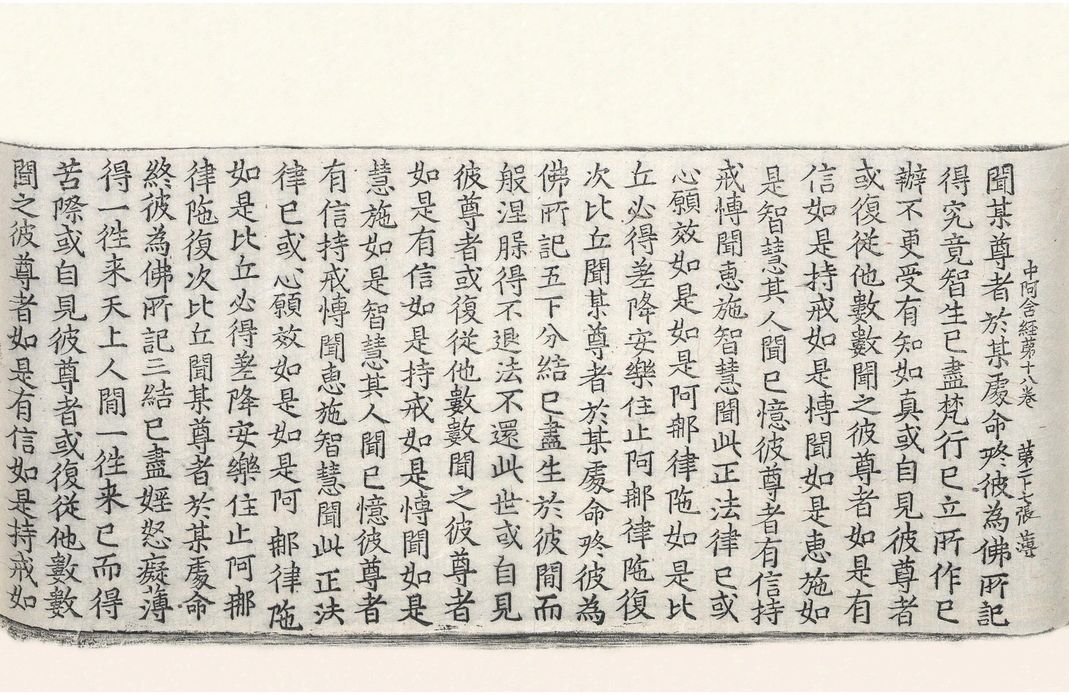 中阿含經苐十八卷 苐二十七張
聞某尊者於某處命終彼為佛所記
得究竟智生已盡梵行已立所作已
辦不更受有知如真或自見彼尊者
或復從他數數聞之彼尊者如是有
信如是持戒如是博聞如是惠施如
是智慧其人聞已憶彼尊者有信持
戒博聞惠施智慧聞此正法律已或
心願效如是如是阿那律陁如是比
丘必得差降安樂住止阿那律陁復
次比丘聞某尊者於某處命終彼為
佛所記五下分結已盡生於彼閒而
般涅槃得不退法不還此世或自見
彼尊者或復從他數數聞之彼尊者
如是有信如是持戒如是博聞如是
慧施如是智慧其人聞已憶彼尊者
有信持戒博聞惠施智慧聞此正法
律已或心願效如是如是阿那律陁
如是比丘必得差降安樂住止阿那
律陁復次比丘聞某尊者於某處命
終彼為佛所記三結已盡婬怒癡薄
得一往来天上人閒一往来已而得
苦際或自見彼尊者或復從他數數
聞之彼尊者如是有信如是持戒如